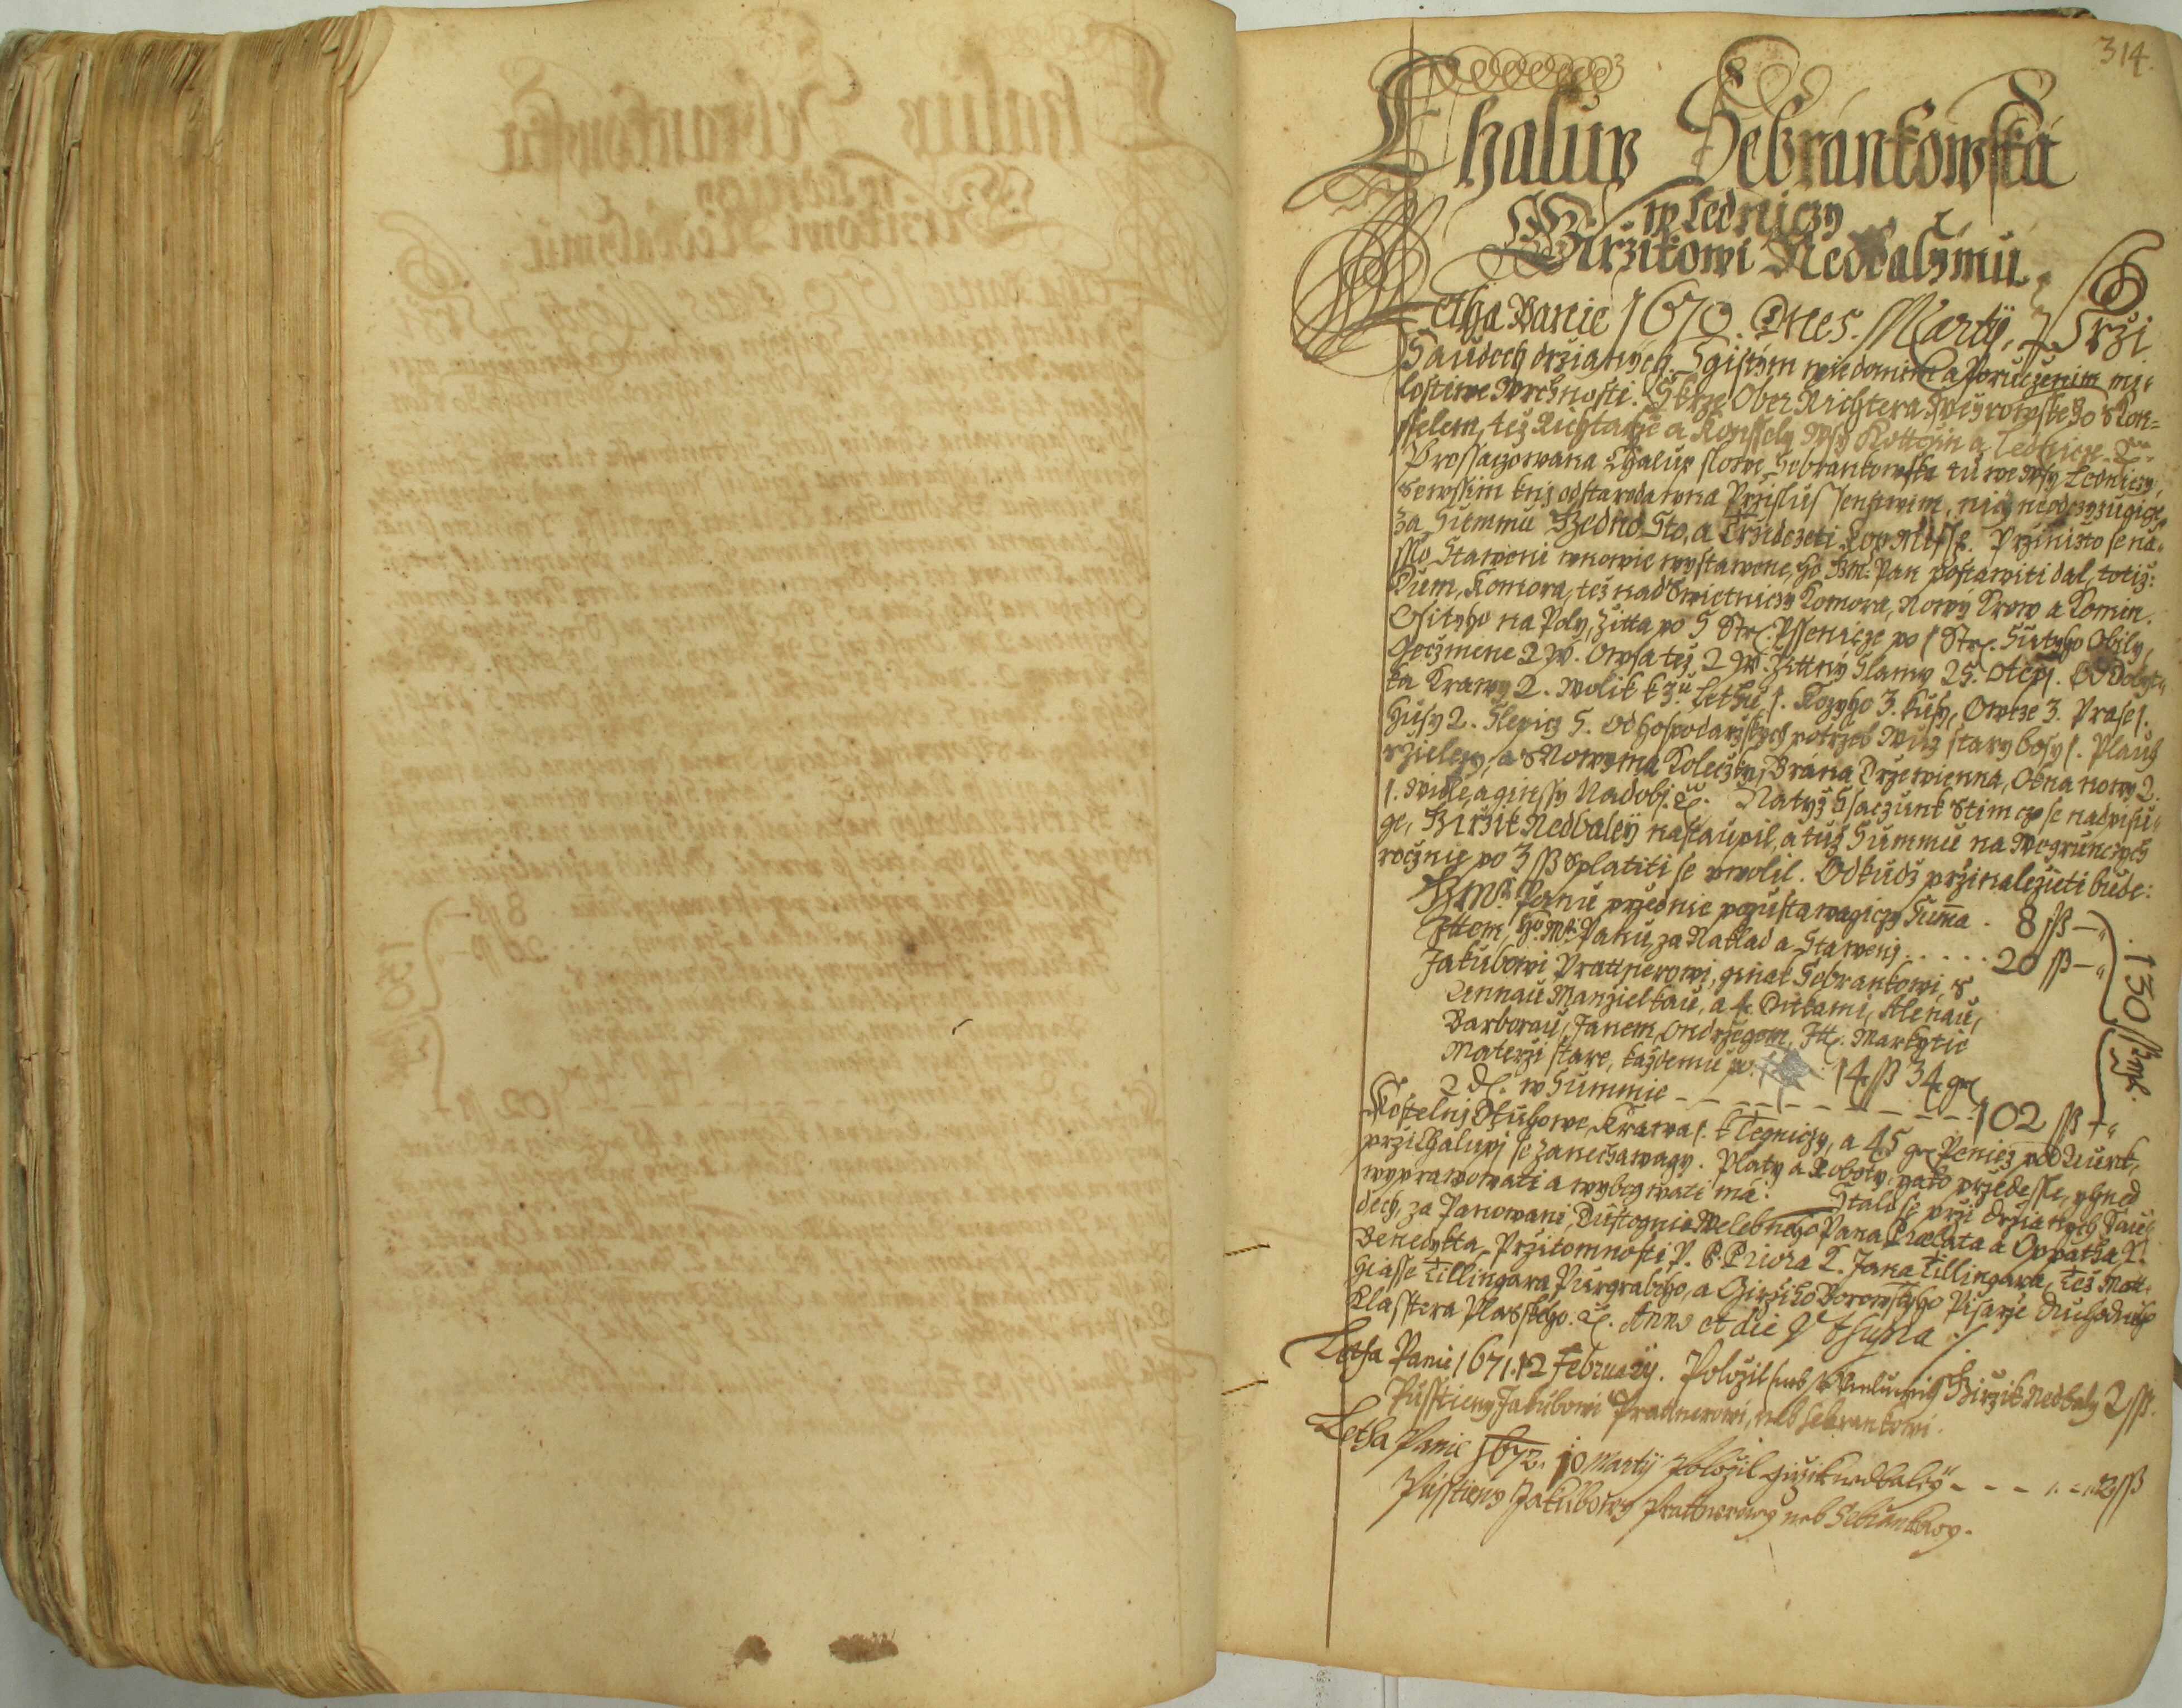 314.
Chalup Sebrankowská
w Ledniczy
Girzikowi Nedbalymu.
Letha Panie 1670. Dne 5. Martij, Przi
Saudech držianých. S gistým wiedomim a Poruczenim mi-
lostiwe Wrchnosti. Skrze Ober Richtera s Kon-
sselem, též Richtarže a Konssely Wsy Kottczin a Lednicze
Prossaczowana Chalup slowe Sebrankowska tu we Wsy Ledniczy,
sewssim k niž odstarodawna Przislussenstwim, nicz neodczyzugicz,
Za Summu Gedno Sto, a Trzidczeti kop Miss. Przi niž to se na-
Staweni wnowie wystawene, ho Gm: Pan postawiti dal, totiž:
Dum, Komora, též nad Swietniczy Komora, Nowý Krow a Komin.
Osityho na Poly, Žitta po 5 Str. Pssenicze po 1 Str. Sutyho Obily,
Geczmene 2 w. Owsa též 2 w. Žittný Slamy 25. Otep. Od Dobyt-
ka Krawy 2. Wolik k 3tu Lethu 1. Kozyho 3. kusy, Owcze 3. Prase 1.
Husy 2. Slepicz 5. Od hospodarzskych potrzeb Wuz stary bosy 1. Pluh
a s Nowyma Koleczky, Brana Drzewienna, Okna nowy 2.
1. Widle, a ginssy Nadobj. Natyž Ssaczunk Stim czo se nadpisu-
ge, Girzik Nedbaleÿ nastaupil, a tuž Summu na Wegrunczych
rocznie po 3 ss splatiti se uwolil. Odkudž przinaležieti bude:
Panu przednie pozustawagiczy Suma . 8 ss —
Ittem, ho Mti Panu, za Naklad a Stawenj . . . . . 20 ss —
Jakubowi Prattnerowi, ginak Sebrankowi, s
Annau Manzielkau, a 4 Ditkami, Alenau,
Barborau, Janem, Ondrzegem, Itt. Markytie
Materzi stare, každemu po 14 ss 34 gr
2 d. w Summie - - - - - - - - - - 102 ss
130 ss
Kostelnj Dluhowe, Krawa 1. k Tegniczy, a 45 gr Peniez
przi Chalupj se zanechawagy. Platy a Roboty, yako przedesse, yhned
wyprawowati a wybeywati má. Stalo se przi držianych Sau-
dech, za Panowani Dustognie Welebneho Pana Prælata a Oppatha
Benedykta, Przitomnosti P. P. Priora Jana Tillingara, též Matt-
hiasse Tillingara Purgrabiho, a Girziho Borowskyho Pisarze Duchodnjho
Klasstera Plasskeho. Anno et die Vt Supra
Letha Panie 1671. 12 Februarij. Položil Girzik Nedbaly 2 ss.
Pusstieny Jakubowi Prattnerowi, neb Sebrankowi.
Letha Panie 1672. 10 Martij Položil Girzik nedbaleÿ - - - 2 ss
Pusstieny Jakubowy Prattnerowy neb Sebrankowy.